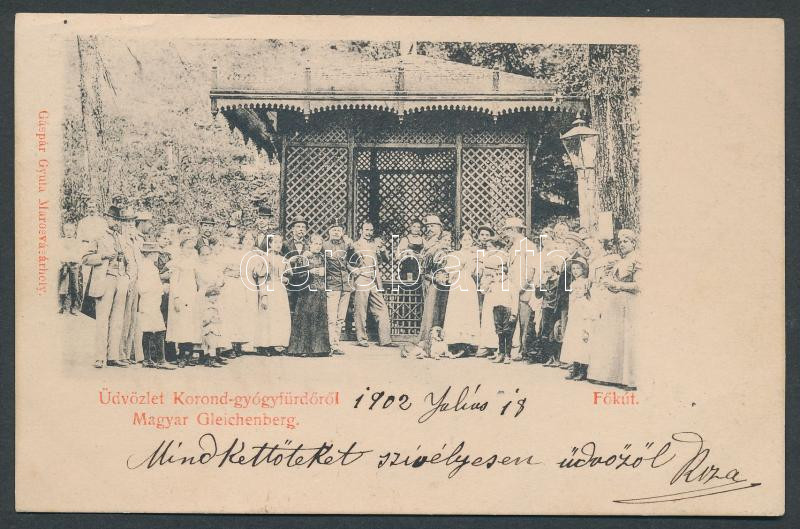 Gáspár Gyula Marosvásárhely.
darabanth
Üdvözlet Korond-gyógyfürdőről
Magyar Gleichenberg.
Főkút.
1902 Julius 18
Mindkettőteket szivélyesen üdvözöl
Roza